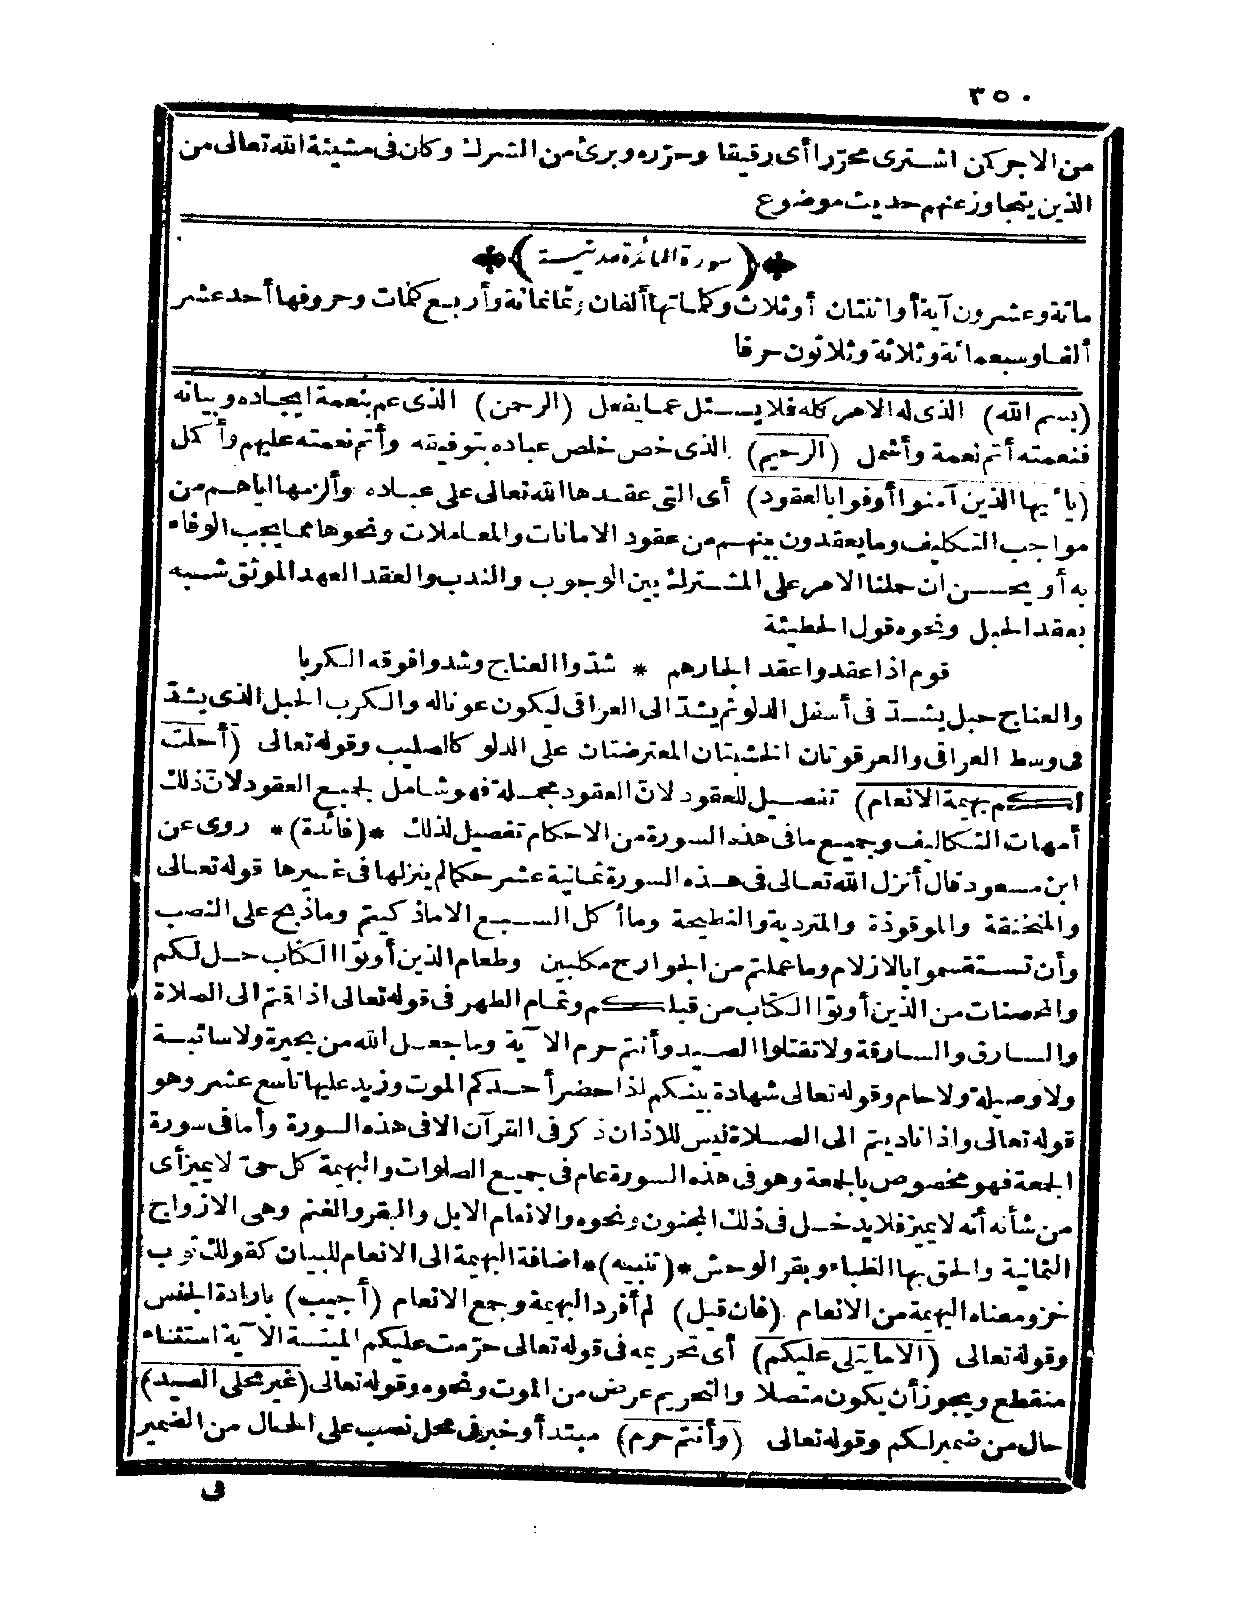 ٣٥٠
من الاجر كن اشترى محرّرا أى رقيقا وحرّره وبرئ من الشرك وكان فى مشيئة الله تعالى من
الذين يتجاوز عنهم حديث موضوع
(سورة المائدة مدنية)
مائة وعشرون آية أواثنتان أوثلاث وكلماتها ألفان وثمانمائة وأربع كلمات وحروفها أحد عشر
ألفا وسبعمائة وثلاثة وثلاثون حرفا
(بسم الله) الذى له الامر كله فلا يسئل عما يفعل (الرحمن) الذى عم بنعمة ايجاده وبيانه
فنعمته أتم نعمة وأشمل (الرحيم) الذى خص خلص عباده بتوفيقه وأتم نعمته عليهم وأكمل
(يا أيها الذين آمنوا أوفوا بالعقود) أى التى عقدها الله تعالى على عباده وألزمها اياهم من
مواجب التكليف وما يعقدون بينهم من عقود الامانات والمعاملات ونحوها مما يجب الوفاء
به أو يحسن ان حملنا الامر على المشترك بين الوجوب والندب والعقد العهد الموثق شبه
بعقد الحبل ونحوه قول الحطيئة
قوم اذا عقدوا عقد الجارهم * شدّوا العناج وشدوا فوقه الكربا
والعناج حبل يشدّ فى أسفل الدلو ثم يشدّ الى العراقى ليكون عوناله والكرب الحبل الذى يشدّ
فى وسط العراقى والعرقوتان الخشبتان المعترضتان على الدلو كالصليب وقوله تعالى (أحلت
لكم بهيمة الانعام) تفصيل للعقود لانّ العقود مجملة فهو شامل لجميع العقود لانّ ذلك
أمهات التكاليف وجميع ما فى هذه السورة من الاحكام تفصيل لذلك *(فائدة)* روى عن
ابن مسعود قال أنزل الله تعالى فى هذه السورة ثمانية عشر حكما لم ينزلها فى غيرها قوله تعالى
والمنخنقة والموقوذة والمتردية والنطيحة وما أكل السبع الا ماذكيتم وماذبح على النصب
وأن تستقسموا بالازلام وما علمتم من الجوارح مكلبين وطعام الذين أوتوا الكتاب حل لكم
والمحصنات من الذين أوتوا الكتاب من قبلكم وتمام الطهر فى قوله تعالى اذا قتم الى الصلاة
والسارق والسارقة ولا تقتلوا الصيد وأنتم حرم الآية وما جعل الله من بحيرة ولا سائبة
ولا وصيلة ولا حام وقوله تعالى شهادة بينكم اذا حضر أحدكم الموت وزيد عليها تاسع عشر وهو
قوله تعالى واذا ناديتم الى الصلاة ليس للاذان ذكر فى القرآن الا فى هذه السورة وأما فى سورة
الجمعة فهو مخصوص بالجمعة وهو فى هذه السورة عام فى جميع الصلوات والبهيمة كل حىّ لا يميز أى
من شأنه أنه لا يميز فلا يدخل فى ذلك المجنون ونحوه والانعام الابل والبقر والغنم وهى الازواج
الثمانية والحق بها الظباء وبقر الوحش *(تنبيه)* اضافة البهيمة الى الانعام للبيان كقولك ثوب
خز ومعناه البهيمة من الانعام (فان قيل) لم أفرد البهيمة وجمع الانعام (أجيب) بارادة الجنس
وقوله تعالى (الا ما يتلى عليكم) أى تحريمه فى قوله تعالى حرّمت عليكم الميتة الآية استثناء
منقطع ويجوز أن يكون متصلا والتحريم عرض من الموت ونحوه وقوله تعالى (غير محلى الصيد)
حال من ضمير لكم وقوله تعالى (وأنتم حرم) مبتدأ وخبر فى محل نصب على الحال من الضمير
فى